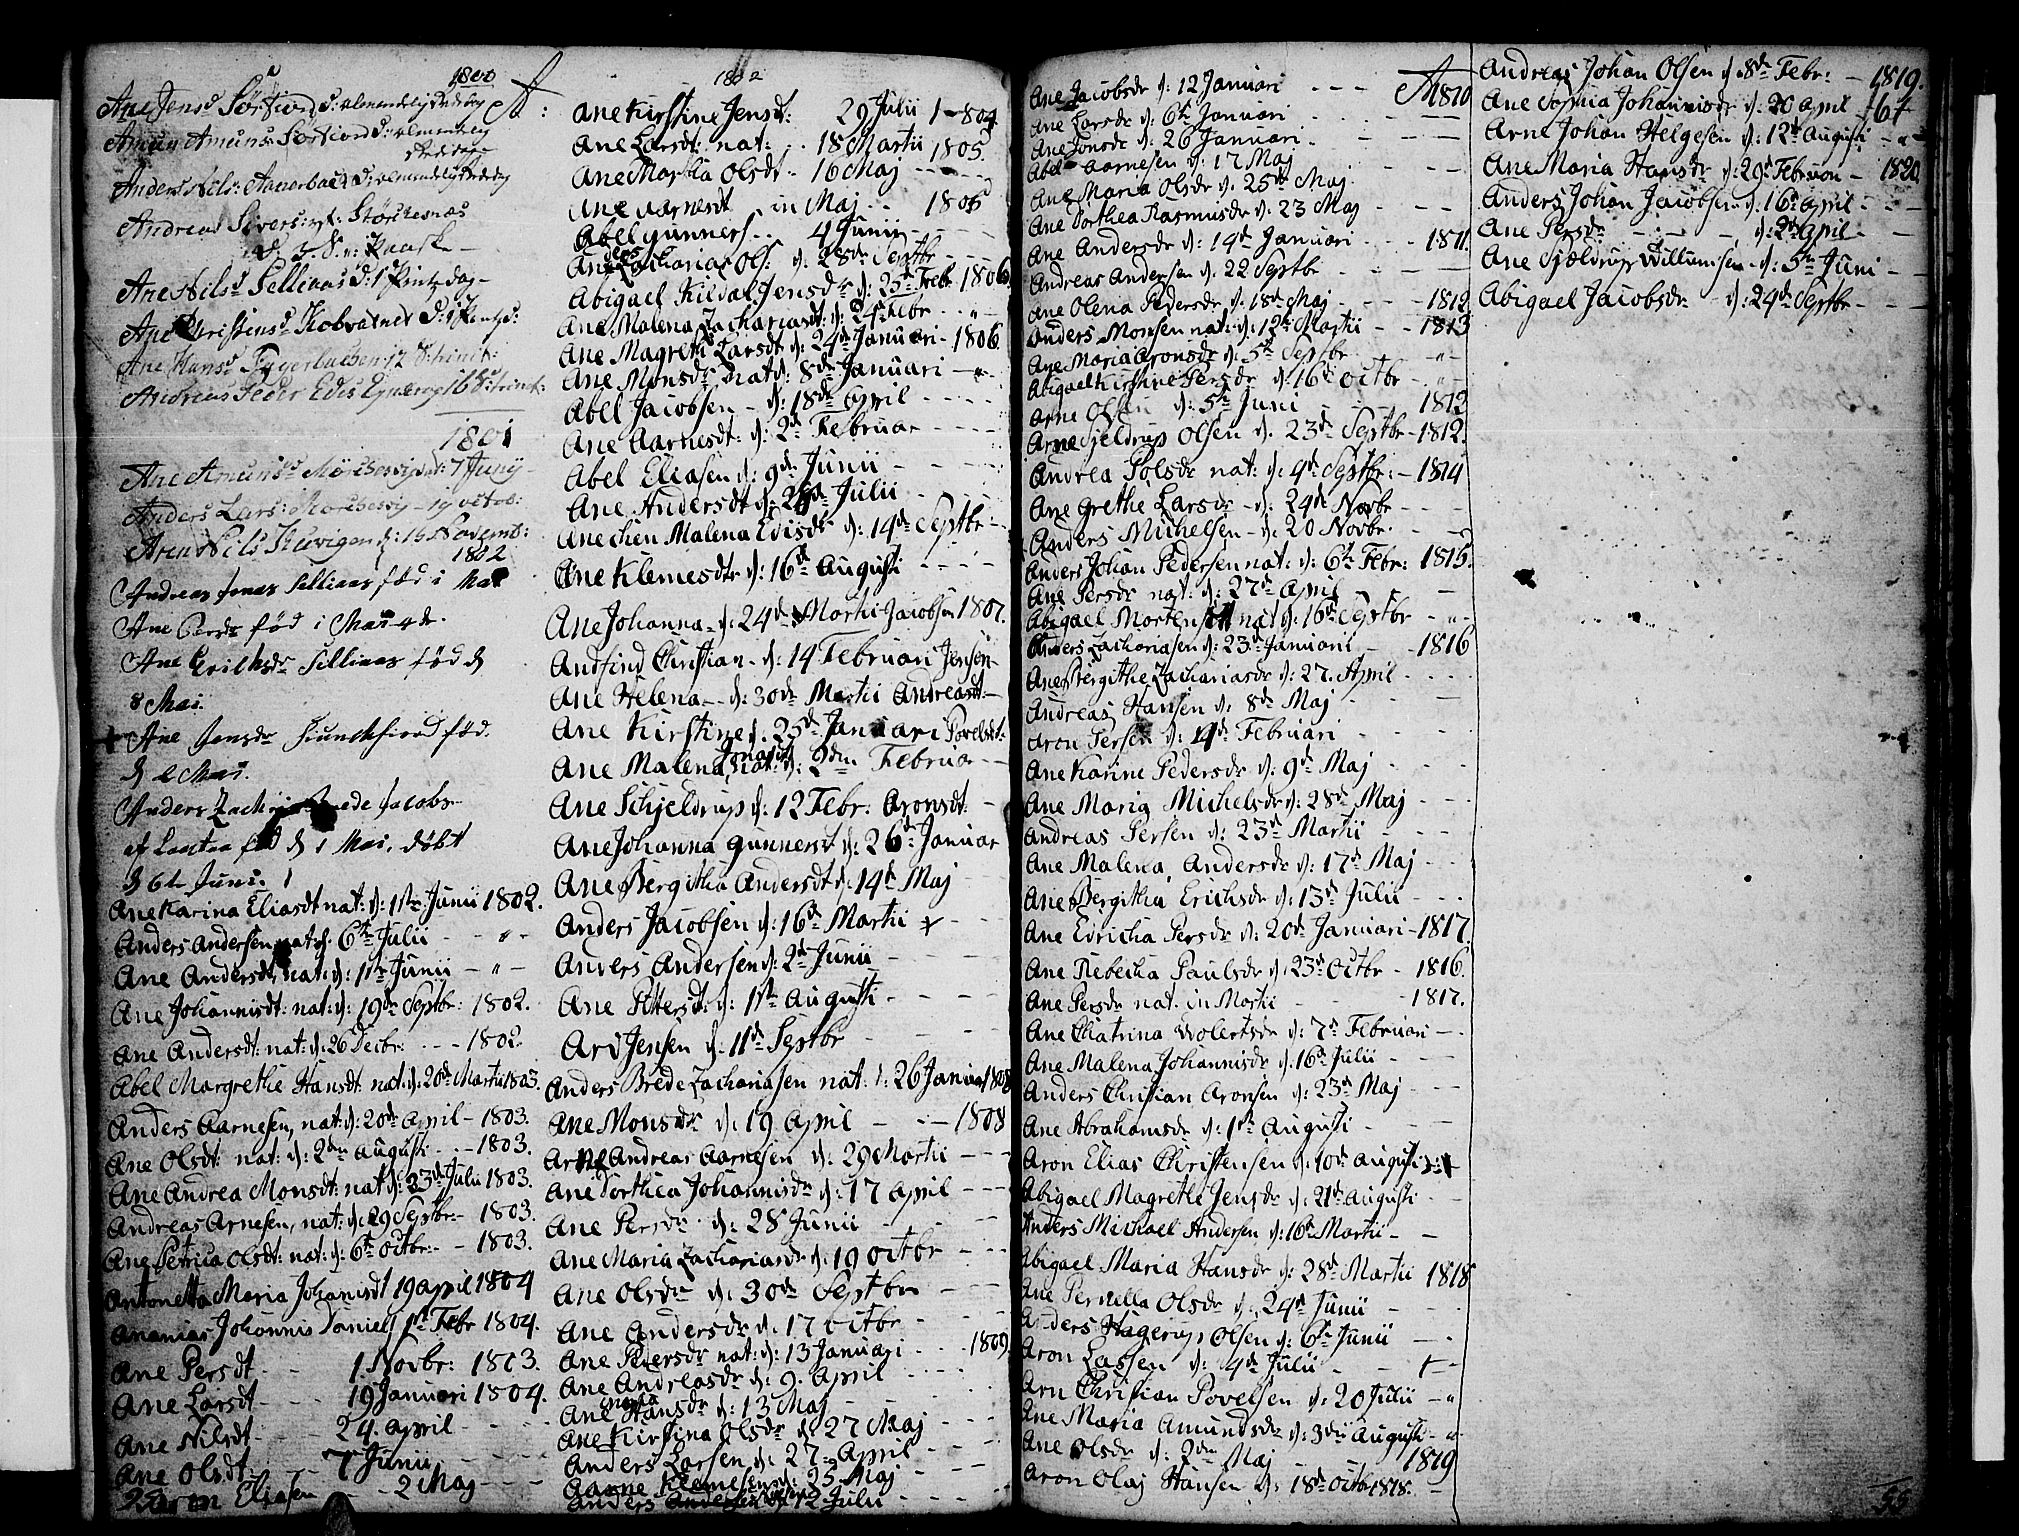 1800
Ane Jensd Sørfiord
A:
Amun Amuns: Sørfiord
Anders Nils:
Andreas Sivers:
Ane Nilsd Sellivas
Ane Christensd Kobvatnet
Ane Hansd
Andreas Peder
1801
Ane Amunsd 7 Junij
Anders Lars: 19 octob:
Aren Nils 15 Novemb:
1802
Andreas Jonas Sellivas fød i Mai
Ane Persdr fød i Mai
Ane Erichsdr Sellivas fød d
8 Mai
Ane Jensdr fød
d Mai.
Anders Zach Brede Jacobs
fød d 1 Mai, døbt
d 6te Juni.
Ane Karina Eliasdt nat: d: 1ste Junii 1802.
Anders Andersen nat d. 6te Julii - " -
Ane Andersdt nat: d: 1ste Junii - " -
Ane Johannisdt: nat: d: 19de Septbr: 1802.
Ane Andersdt: nat: d: 26 Decbr: - - - 1802
Abel Margrethe Hansdt nat: d: 20de Martii 1803.
Anders Aarnesen, nat: d: 20de April - 1803.
Ane Olsdt: nat: d: 2den Augusti - - 1803.
Ane Andrea Monsdt: nat d: 23de Julii 1803.
Andreas Arnesen, nat: d: 29 Septbr: - 1803.
Ane Petrica Olsdt: nat: d: 6te Octbr: - 1803.
Antonetta Maria Johanisdt 19 april 1804
Ananias Johannis Daniels 1ste Febr 1804.
Ane Persdt - - 1. Novbr: 1803.
Ane Larsdt - - 19 Januari 1804.
Ane Nilsdt - - 24. April - -
Ane Olsdt - - 7 Junii - -
Eliasen - - 2 Maj - -
1802
Ane Kirstine Jensdt: 29 Julii 1-804
Ane Larsdt: nat: - - 18 Martii 1805.
Ane Martha Olsdt - - 16 Maj - - -
Ane Aarnesdt in Maj - - 1805
Abel Gunners - - 4 Junii - - -
Ane Zacharias Ols: d: 28de Septbr - - -
Abigael Kildal Jensdr d: 23de Febr 1806
Ane Malena Zachariasdt: d: 24de Febr - " -
Ane Magrethe Larsdt d: 24de Januari - 1806
Ane Monsdr nat d: 8de Januari - " -
Abel Jacobsen - d: 18de April - - -
Ane Aarnesdt: d: 2de Februar - - -
Abel Eliasen d: 9de Junii - - -
Ane Andersdt d: Julii - - -
Anechen Malena Edisdr d: 14de Septbr - -
Ane Klemesdtr d: 16de Augusti - - -
Ane Johanna - d: 24de Martii Jacobsen 1807.
Andfind Christian - d: 14 Februari Jensen
Ane Helena - d: 30de Martii Andreasdt: -
Ane Kirstine d: 25de Januari Povelsdt:
Ane Malena, Jonasdt nat: d: 9den Februar - -
Ane Schjeldrup d: 12 Febr: Aronsdt: -
Ane Johanna Gunnersdt d: 26de Januar
Ane Bergitha Andersdt d: 14de Maj - -
Anders Jacobsen d: 16de Martii + - -
Anders Andersen d: 2de Junii - - -
Ane Pettersdt: d: 1ste Augusti - - -
Ard Jensen d: 11de Septbr - -
Anders Brede Zachariasen nat: d: 26 Januar 1808
Ane Monsdr d: 19 April - - 1808
Arne Andreas Aarnesen d: 29 Martii - - -
Ane Dorthea Johannisdr d: 17 April - - -
Ane Persdr d: 28 Junii - - -
Ane Maria Zachariasdr d: 19 Octbr - - -
Ane Olsdr d: 30de Septbr - - -
Ane Andersdr d: 17 Octbr - - -
Ane Pedersdr nat: d: 13 Januari - - 1809.
Ane Andreasdr d: 9. April - - -
Ane Maria Hansdr d: 13 Maj - - -
Ane Kirstina Olsdr d: 27 Maj - - -
Anders Larsen d: 27 April - - -
Aarne Klemesen d: 25 Maj - - -
Anders Andersen 12 Julii - -
Ane Jacobsdr d: 12 Januari - - - A 1810
Ane Larsdr d: 6te Januari - - -
Ane Jonsdr d: 26 Januari - - -
Abel Aarnesen d: 17 Maj - - -
Ane Maria Olsdr d: 25de Maj - -
Ane Dorthea Rasmusdr d: 23 Maj - -
Ane Andersdr d: 14de Januari - - - 1811.
Andreas Andersen d: 22 Septbr - - -
Ane Olena Pedersdr d: 18de Maj - - - 1812
Anders Monsen nat: d: 12te Martii - - 1813
Ane Maria Aronsdr d: 5te Septbr - " -
Abigael Kirstine Persdr d: 16de Octbr - " -
Arne Olsen d: 5te Junii - - - 1812
Arne Sjeldrup Olsen d: 23de Septbr - 1812.
Andrea Polsdr nat: d: 4de Septbr: - 1814
Ane Grethe Larsdr - d: 24de Novbr - - -
Anders Michelsen - d: 20 Novbr: - - -
Anders Johan Pedersen nat: d: 6te Febr: 1815.
Ane Persdr nat: d: 27de April - - -
Abigael Mortens nat d: 16de Septbr - " -
Anders Zachariasen d: 23de Januarii - - 1816
Ane Bergithe Zachariasdr d: 27. April - - -
Andreas Hansen d: 8de Maj - - -
Aron Persen d: 14de Februari - - -
Ane Karine Pedersdr d: 9de Maj - - -
Ane Maria Michelsdr d: 28de Maj - - -
Andreas Persen d: 23de Martii - - -
Ane Malena, Andersdr d: 17de Maj - - -
Ane Bergitha Erichsdr d: 13de Julii - - -
Ane Edricha Persdr d: 20de Januari - 1817.
Ane Rebecka Paulsdr d: 23de Octbr - 1816.
Ane Persdr nat. in Martii - - - 1817.
Ane Chatrina Wolertsdr d: 7de Februari - -
Ane Malena Johannisdr d: 16de Julii - - -
Anders Christian Aronsen d: 23de Maj - -
Ane Abrahamsdr d: 1ste Augusti - - -
Aron Elias Christensen d: 10de Augusti
Abigael Magrethe Jensdr d: 21de Augusti - -
Anders Michael Andersen d: 16de Martii - -
Abigael Maria Hansdr d: 28de Martii 1818
Ane Pernella Olsdr d: 24de Junii - - -
Anders Hagerup Olsen d: 6te Junii - -
Aron Lassen d: 4de Julii - - + -
Arn Christian Povelsen d: 20 Julii - "
Ane Maria Amundsdr d: 3die Augusti - " -
Ane Olsdr d: 2den Maj - - 1819
Aron Olaj Hansen d: 18de Octbr 1818. -
Andreas Johan Olsen d: 8de Febr: - 1819.
Ane Sophia Johannisdr d: 20 April - 67
Arn Johan Helgesen d: 12te Augusti - " -
Ane Maria Hansdr d: 29de Februari - 1820
Anders Johan Jacobsen d: 16de April - - -
Ane Persdr - - - d: 2de April - -
Ane Sjeldrup Willumsen - d: 5te Juni - -
Abigael Jacobsdr - d: 24de Septbr - - -
55